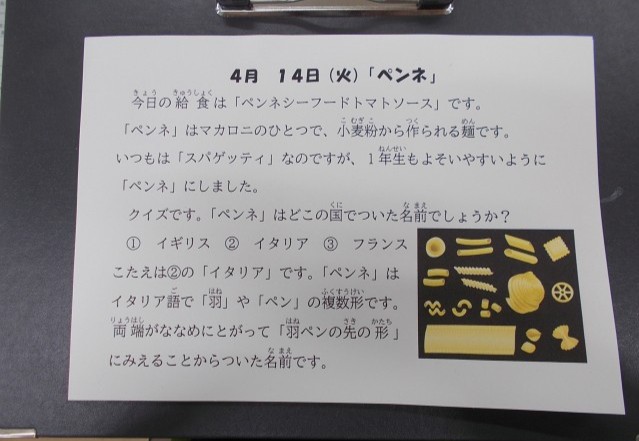 4月 14日(火)「ペンネ」
今日の給食は「ペンネシーフードトマトソース」です。
「ペンネ」はマカロニのひとつで、小麦粉から作られる麺です。
いつもは「スパゲッティ」なのですが、1年生もよそいやすいように
「ペンネ」にしました。
クイズです。「ペンネ」はどこの国でついた名前でしょうか?
① イギリス ② イタリア ③ フランス
こたえは②の「イタリア」です。「ペンネ」は
イタリア語で「羽」や「ペン」の複数形です。
両端がななめにとがって「羽ペンの先の形」
にみえることからついた名前です。